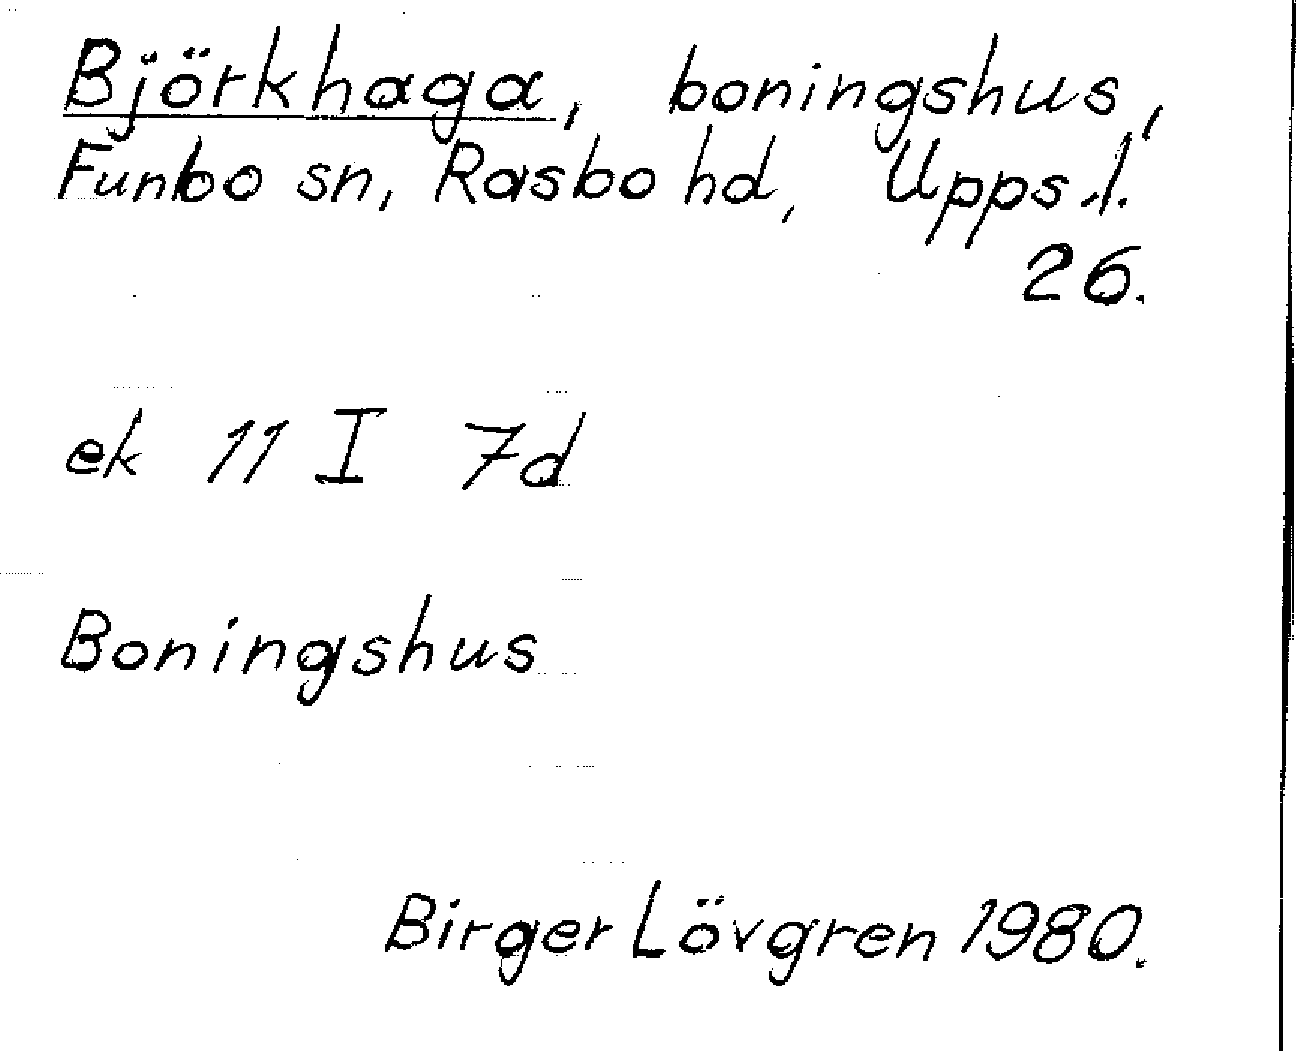 Björkhaga, boningshus,
Funbo sn, Rasbo hd, Upps.l.
26.
ek 11 I 7d
Boningshus
Birger Lövgren 1980.